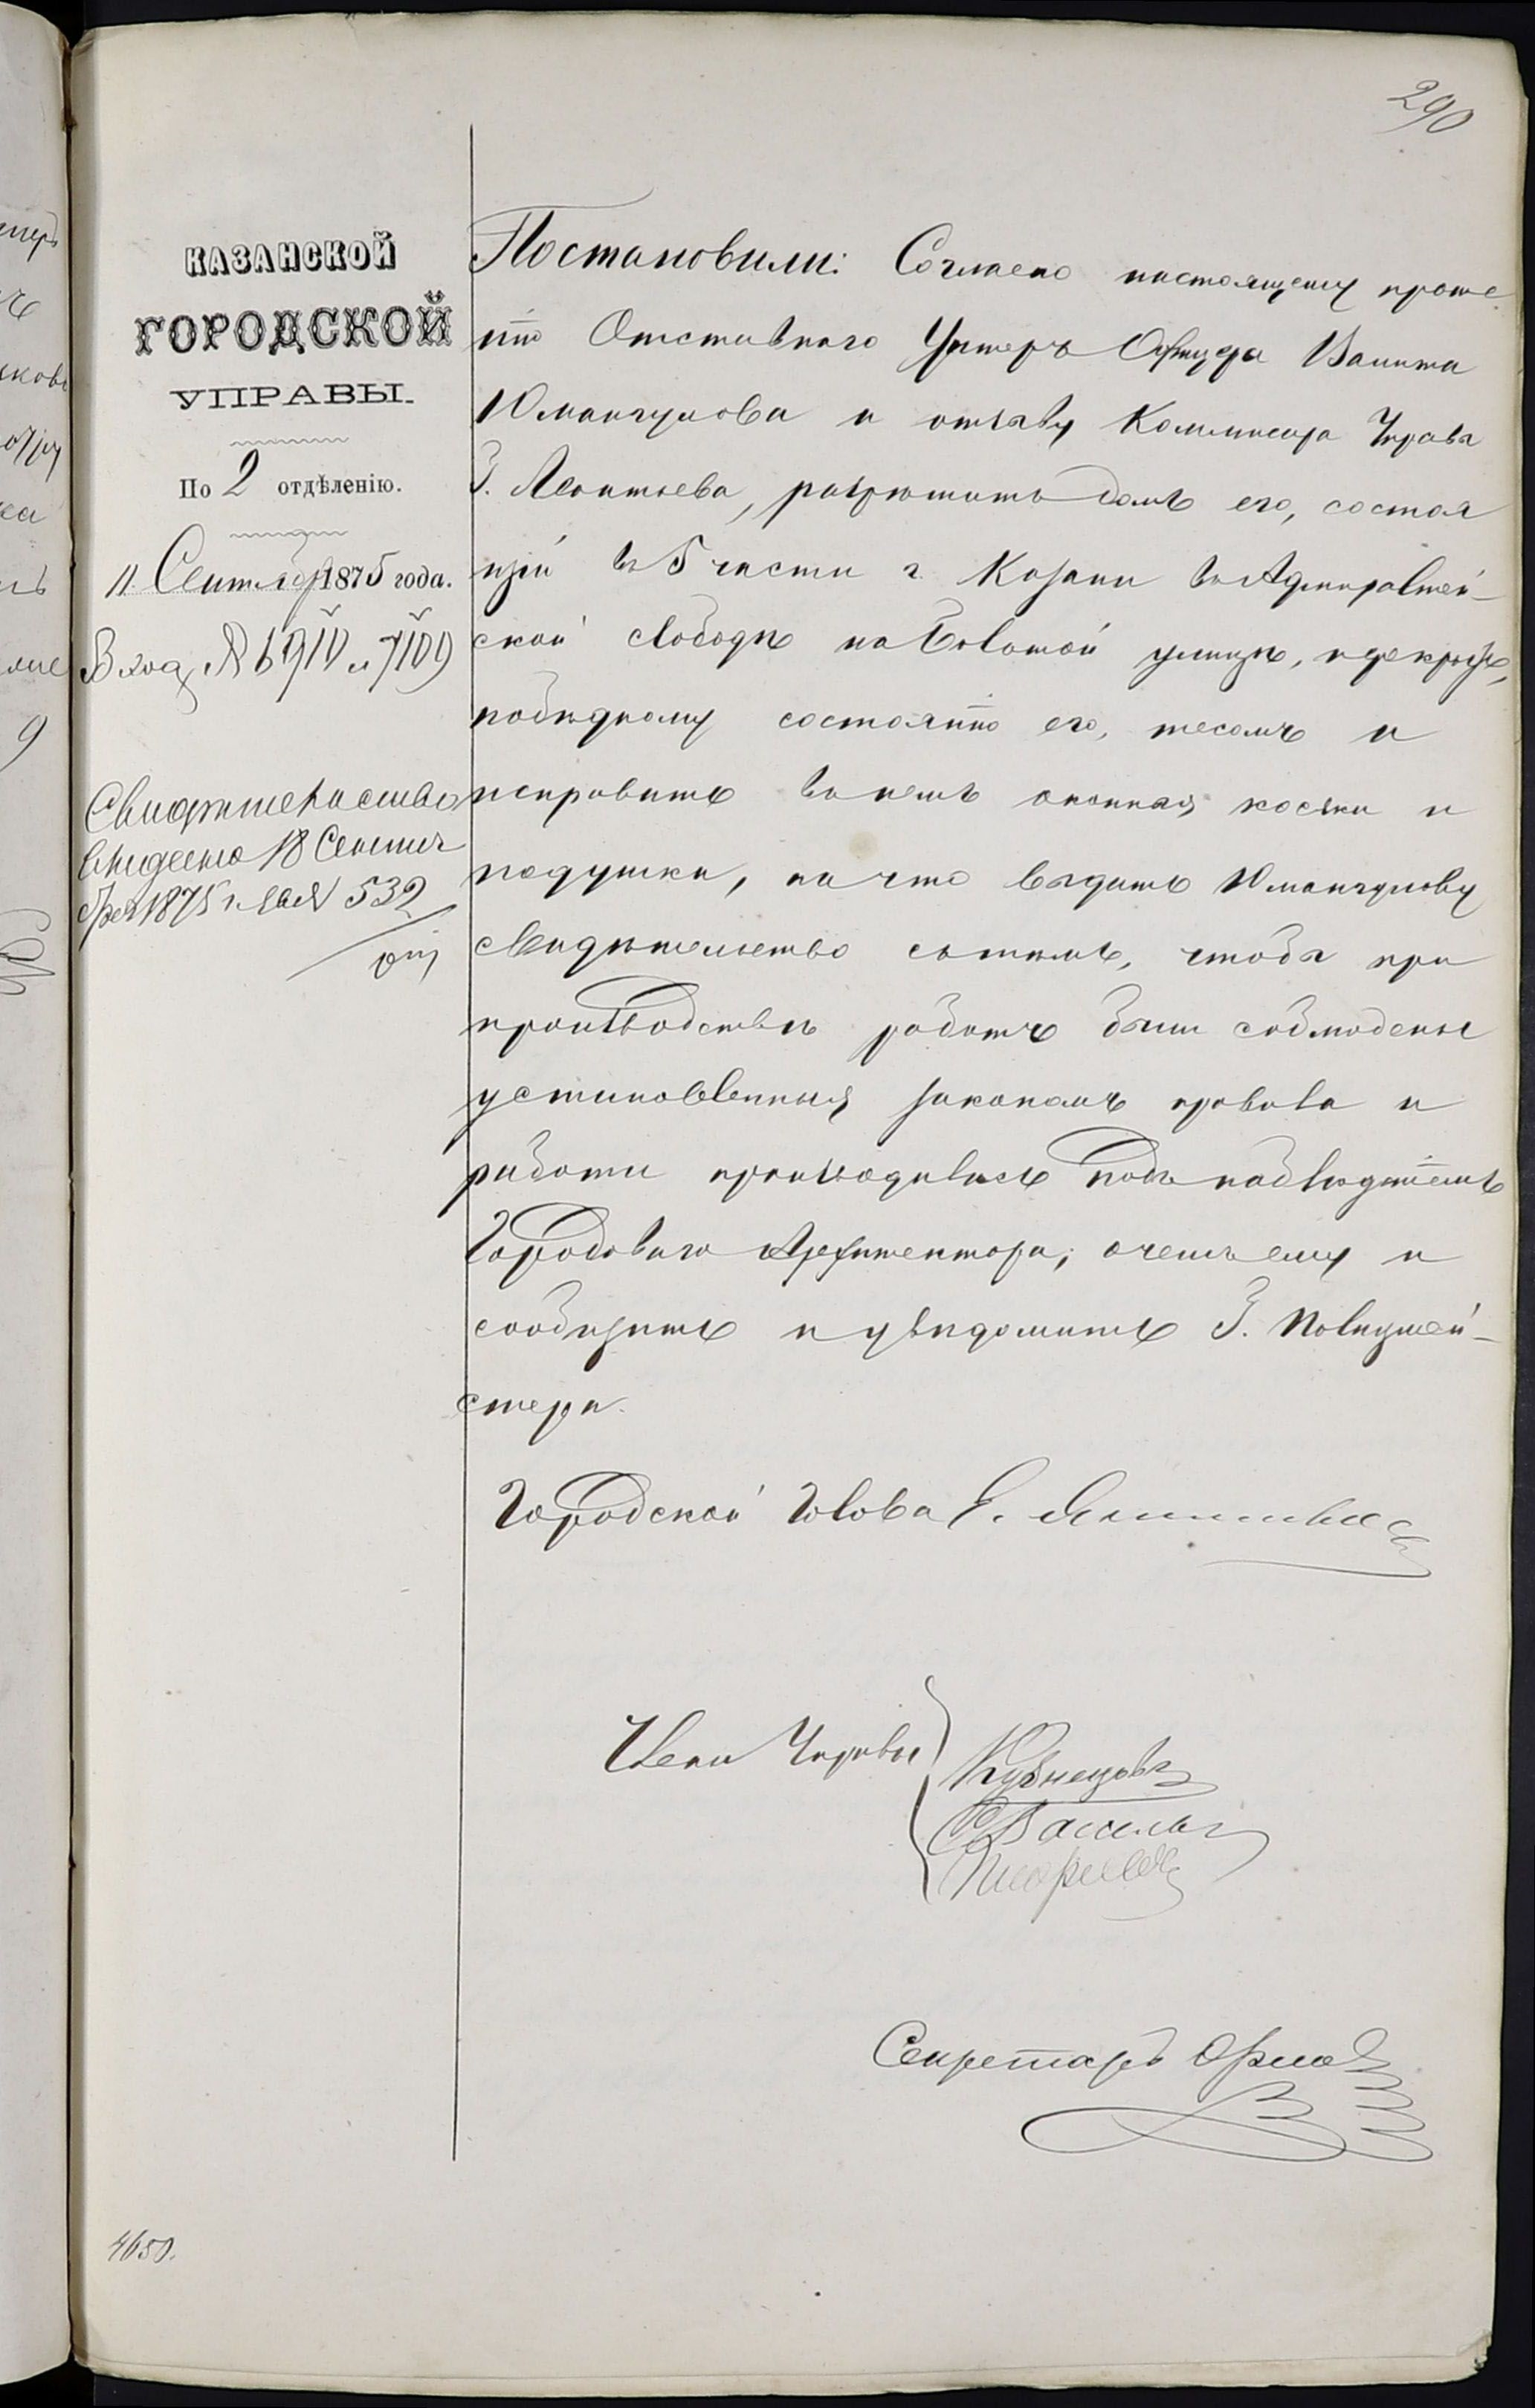 290
КАЗАНСКОЙ
ГОРОДСКОЙ
УПРАВЫ.
По 2 отдѣленію.
11 Сентября 1875 года.
Вход № 6910 и 7109
Свидѣтельство
выдано 18 Сентя
бря 1875 г. за № 532
Постановили: Согласно настоящему проше
нію Отставнаго Унтеръ Офицера Валита
Юмангулова и отзыву Коммисара Управы
Г. Леонтьева, разрѣшить домъ его, состоя
щій въ 5 части г. Казани въ Адмиралтей-
ской слободѣ на Болотой улицѣ,
побѣдному состоянію его, тесомъ и
исправить въ немъ оконныя косяки и
подушки, на что выдать Юмангулову
свидѣтельство сътѣмъ, чтобы при
производствѣ работъ были соблюдены
установленныя закономъ правила и
работы производились подъ наблюденіемъ
Городоваго Архитектора, очемъ ему и
сообщить и увѣдомить Г. Полицмей-
стера.
Городской Голова Е.
Члены Управы
Кузнецовъ
Секретарь Орлов
4650.